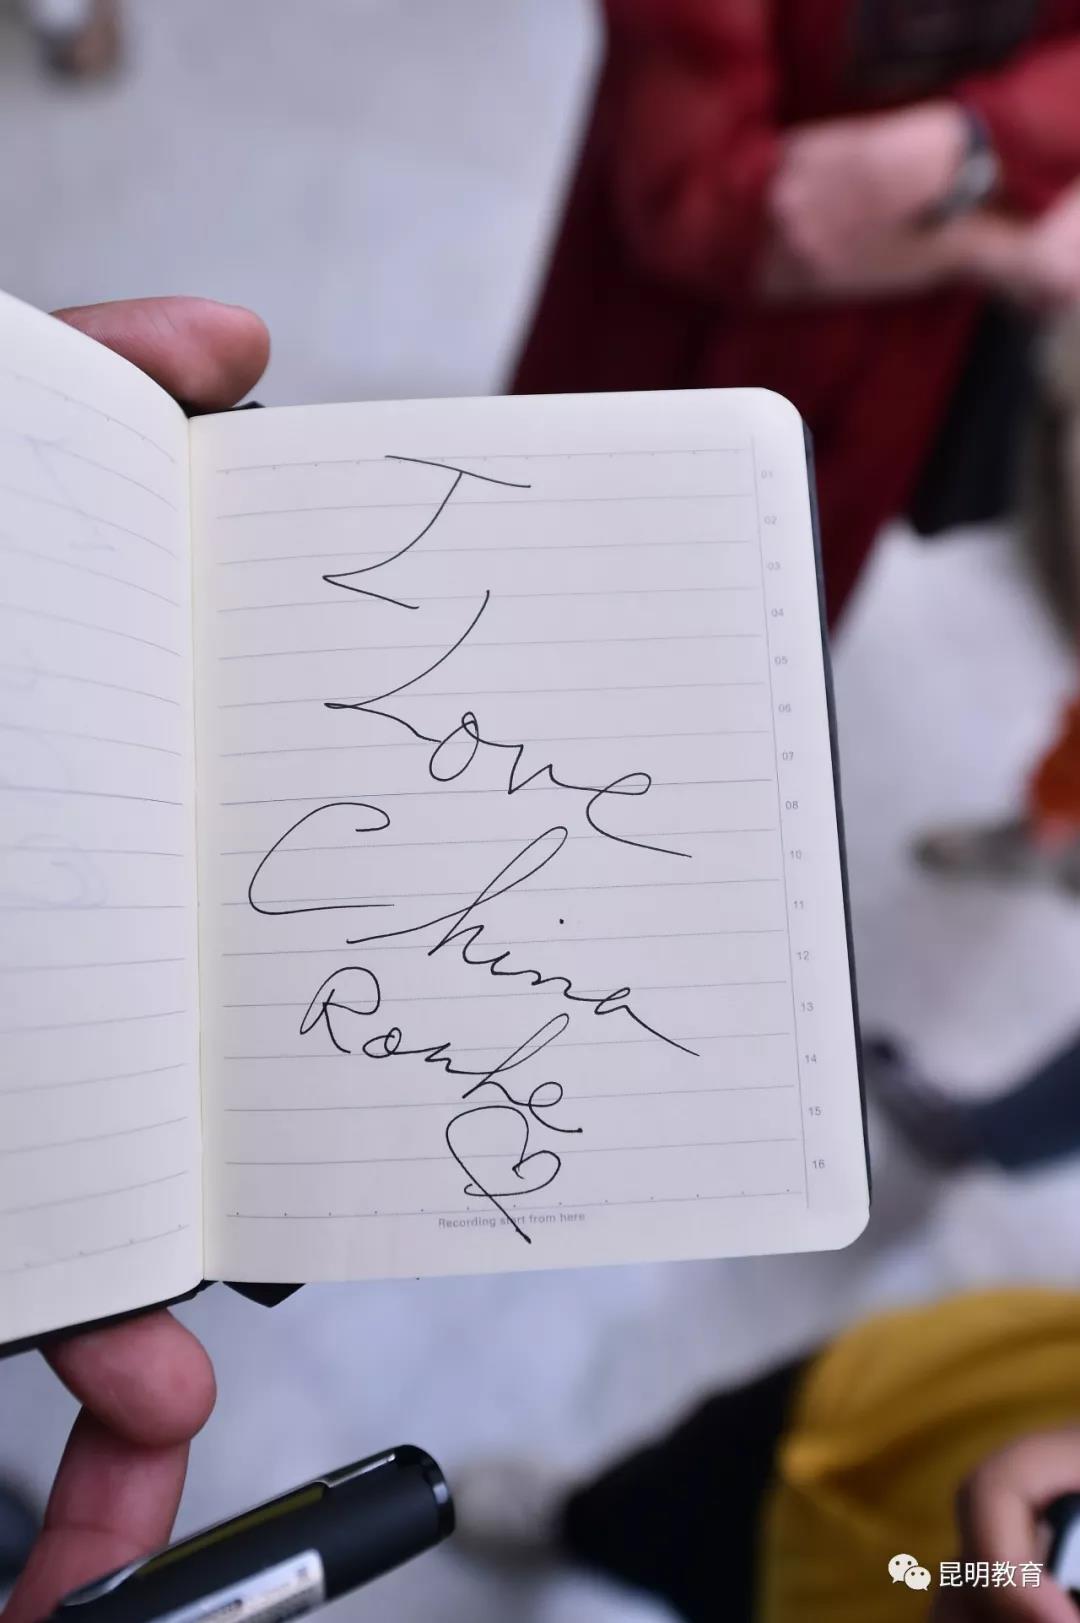 I
Love
China
Rouhe
01
02
03
04
05
06
07
08
10
11
12
13
14
15
16
Recording start from here
昆明教育